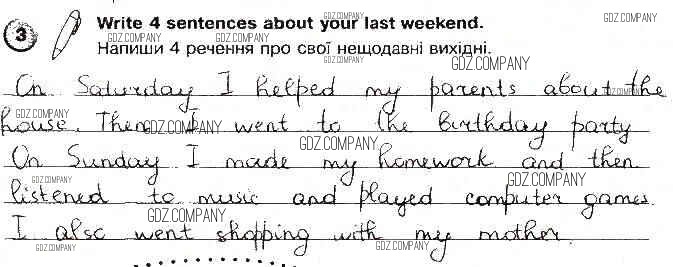 3 Write 4 sentences about your last weekend.
Напиши 4 речення про свої нещодавні вихідні.
On Saturday I helped my parents about the
house. Then I went to the birthday party
On Sunday I made my homework and then
listened to music and played computer games.
I also went shopping with my mother.
GDZ.COMPANY
GDZ.COMPANY
GDZ.COMPANY
GDZ.COMPANY
GDZ.COMPANY
GDZ.COMPANY
GDZ.COMPANY
GDZ.COMPANY
GDZ.COMPANY
GDZ.COMPANY
GDZ.COMPANY
GDZ.COMPANY
GDZ.COMPANY
GDZ.COMPANY